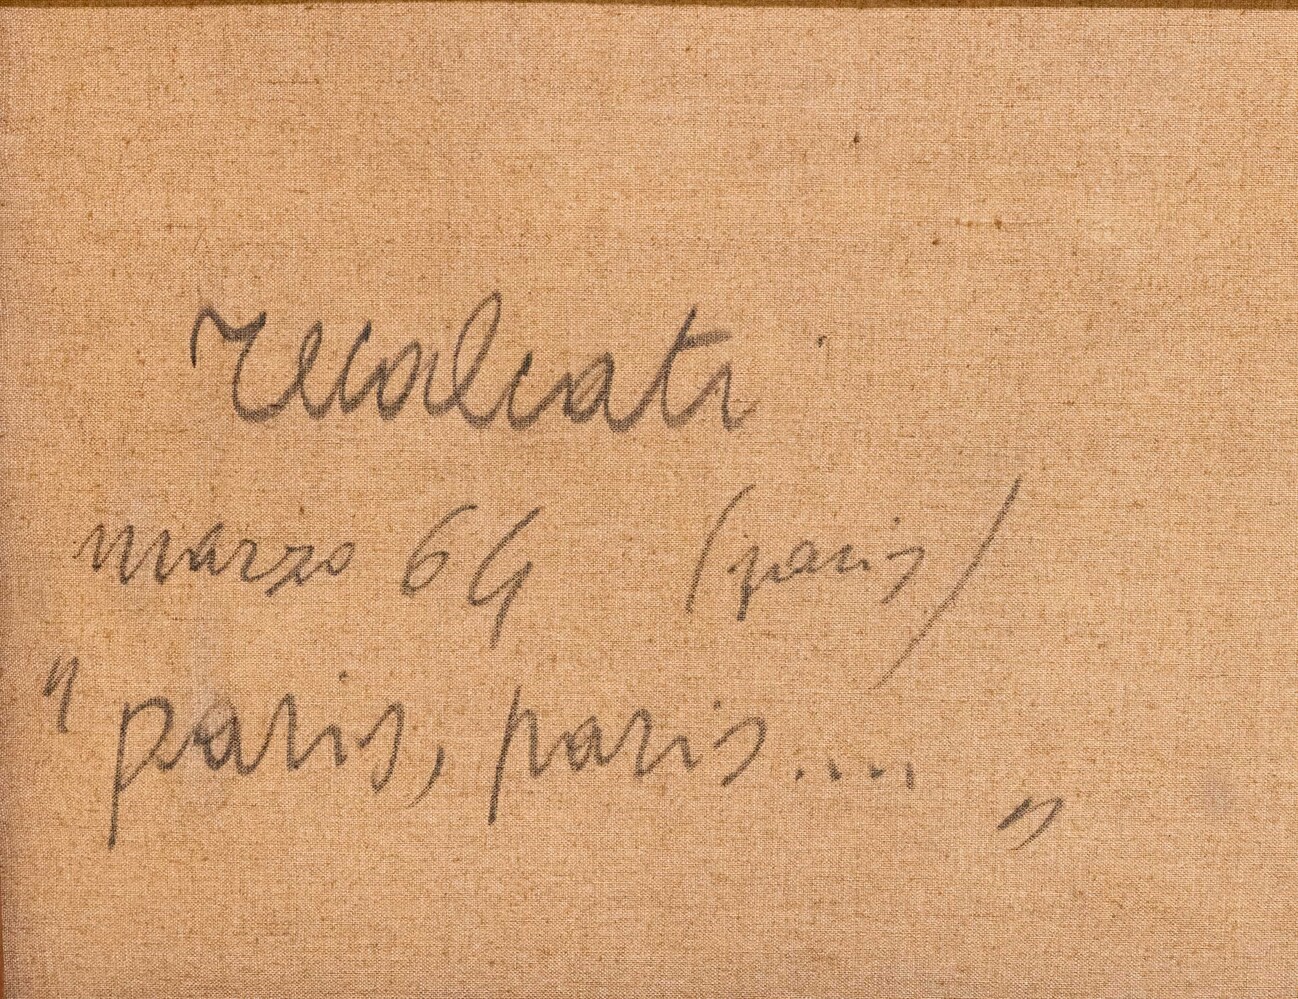 Recalcati
marzo 64 (paris)
"paris, paris....„